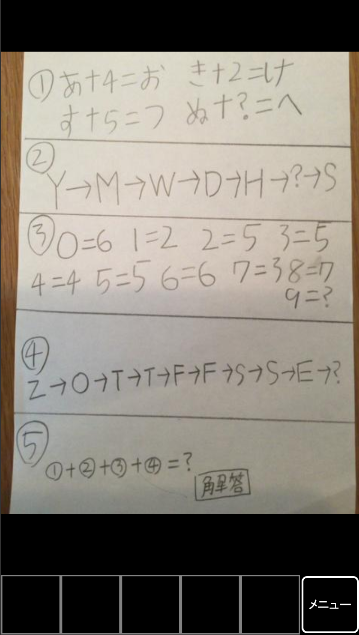 ① あ+4=お き+2=け
す+5=つ ぬ+?=へ
② Y→M→W→D→H→?→S
③ 0=6 1=2 2=5 3=5
4=4 5=5 6=6 7=3 8=7
9=?
④ Z→O→T→T→F→F→S→S→E→?
⑤ ①+②+③+④=?
解答
メニュー